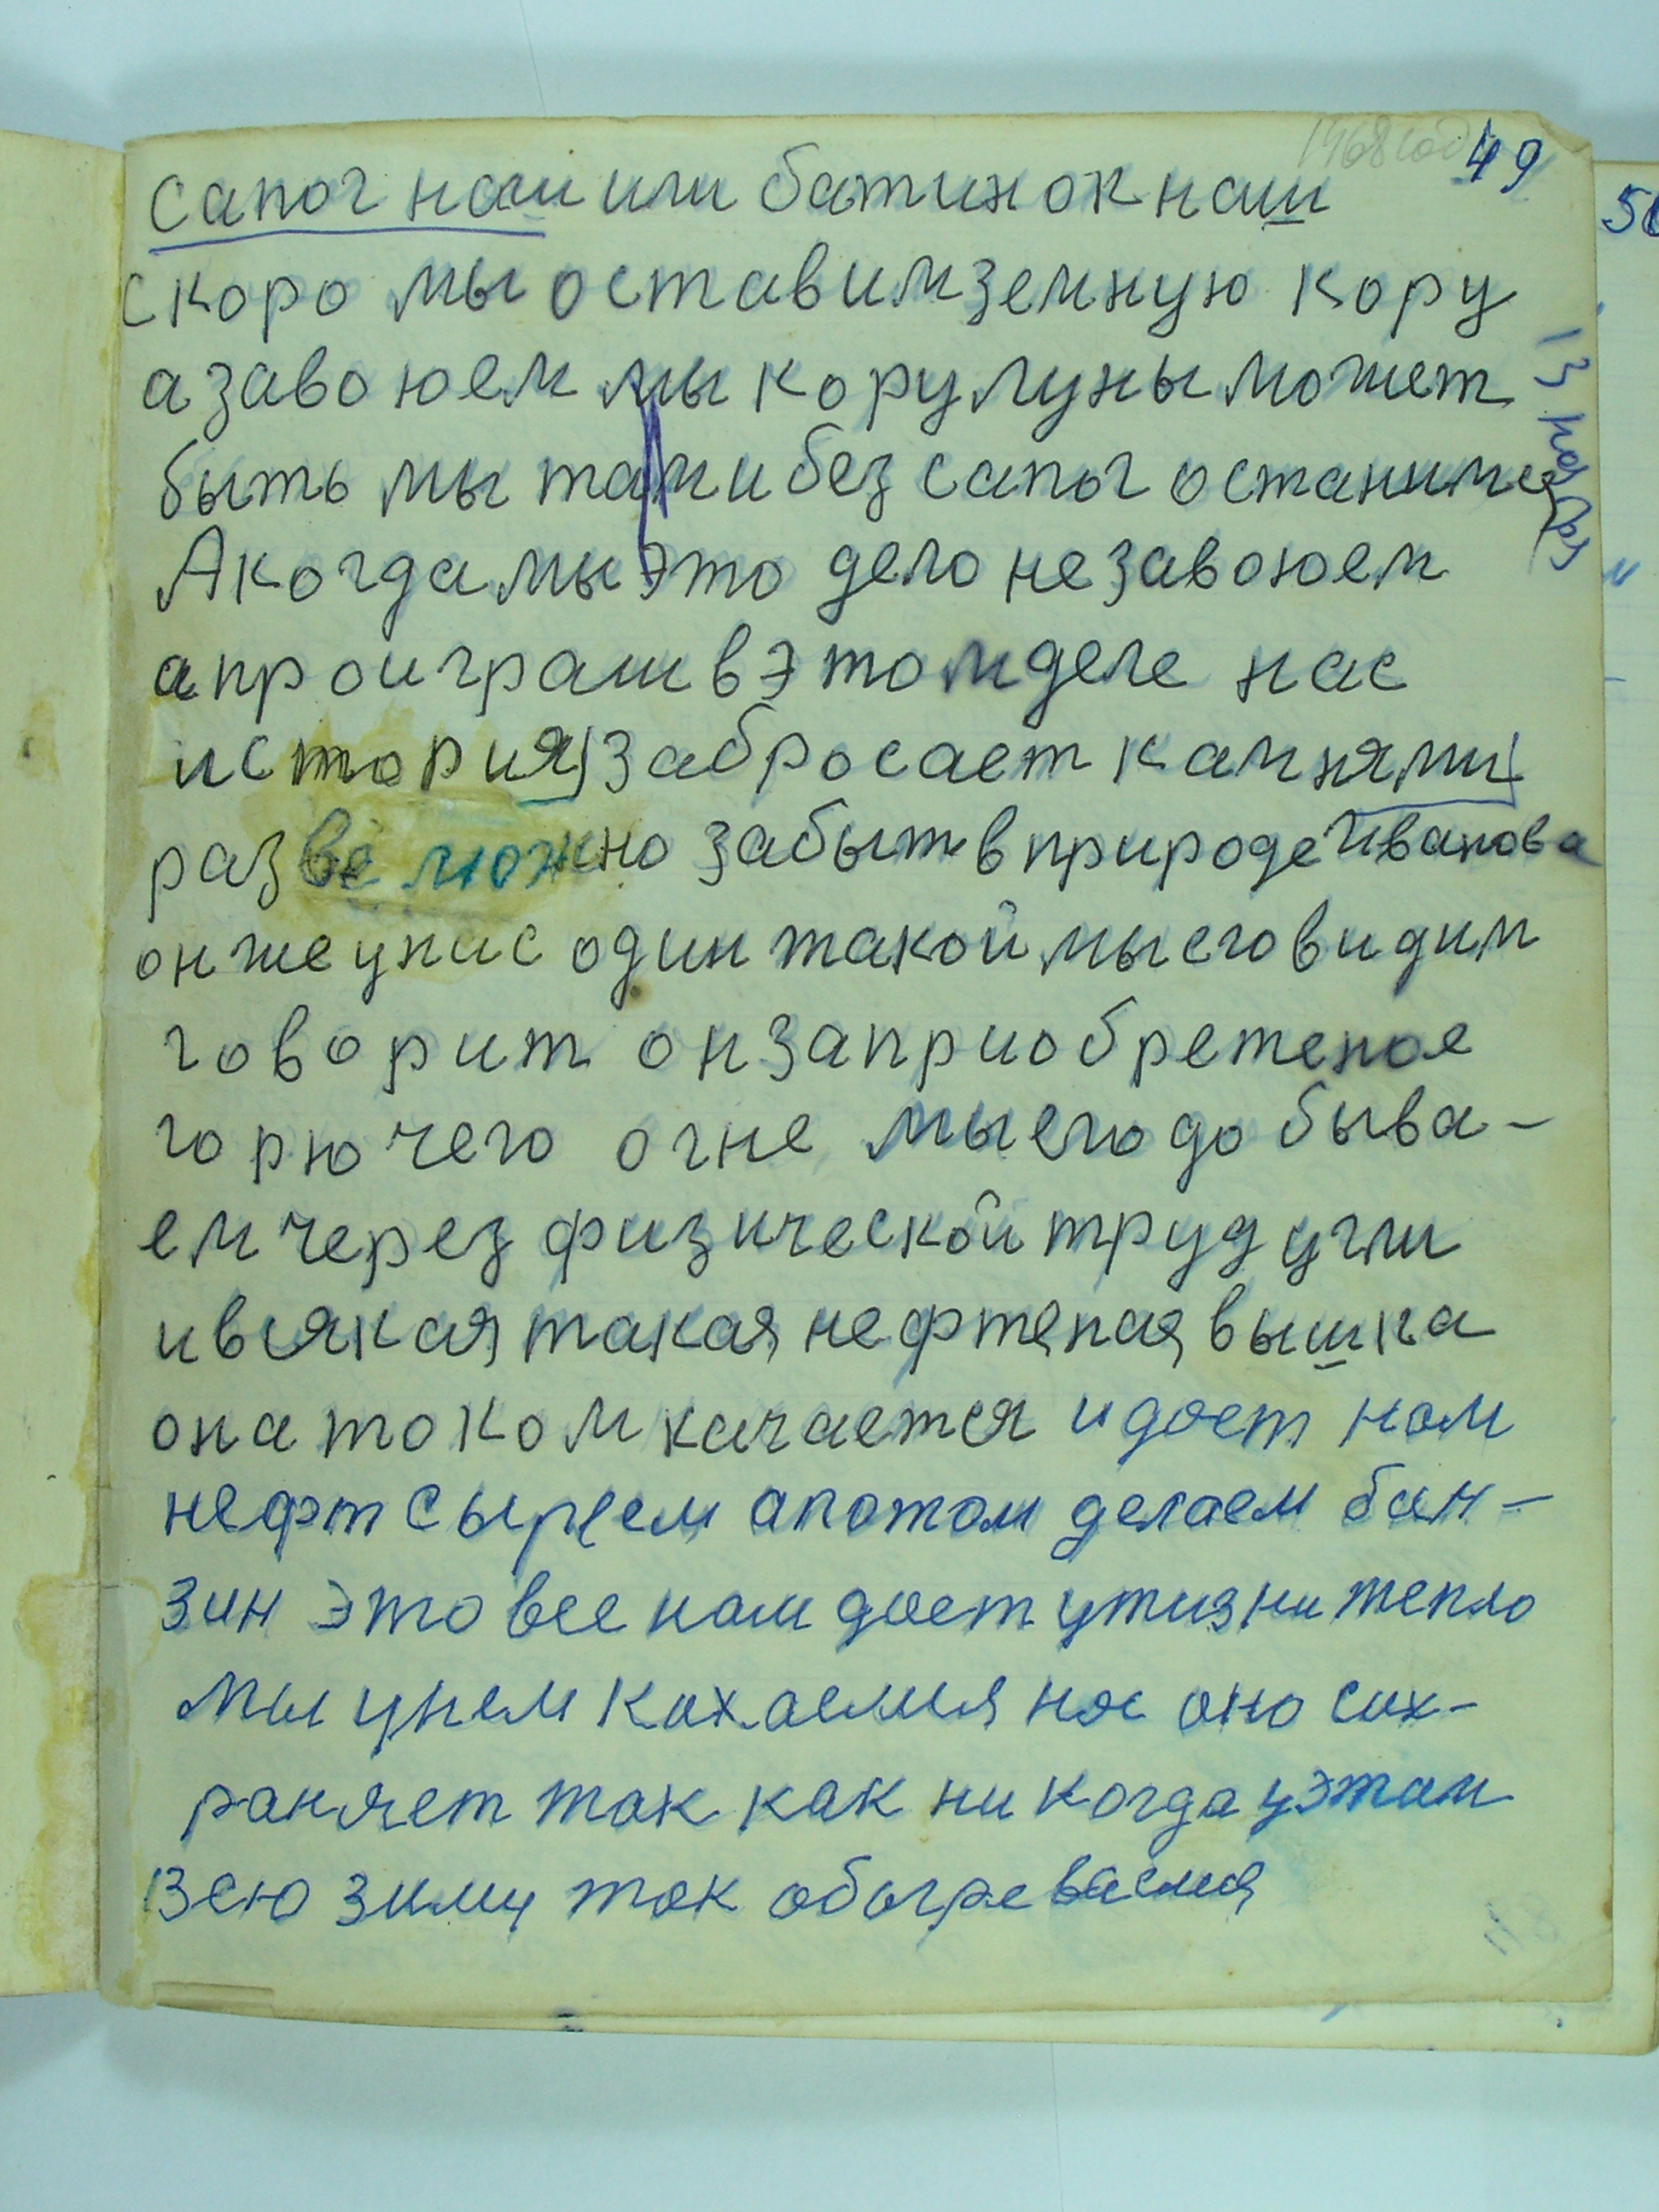 1968 год 49
сапог наш или батинок наш
скоро мы оставим земную кору
а завоюем мы кору луны может
быть мы там и без сапог останимся
А когда мы это дело не завоюем
а проиграим в этом деле нас
история забросает камнями
разве можно забыть в природе Иванова
он же у нас один такой мы его видим
говорит он за приобретеное
горючего огне мы его добыва-
ем через физической труд угли
и всякая такая нефтеная вышка
она током качается и дает нам
нефт сырьем а потом делаем бен-
зин это все нам дает у жизни тепло
мы у нем кохаемся нас оно сох-
раняет так как никогда у этам
всю зиму так обогреваемся